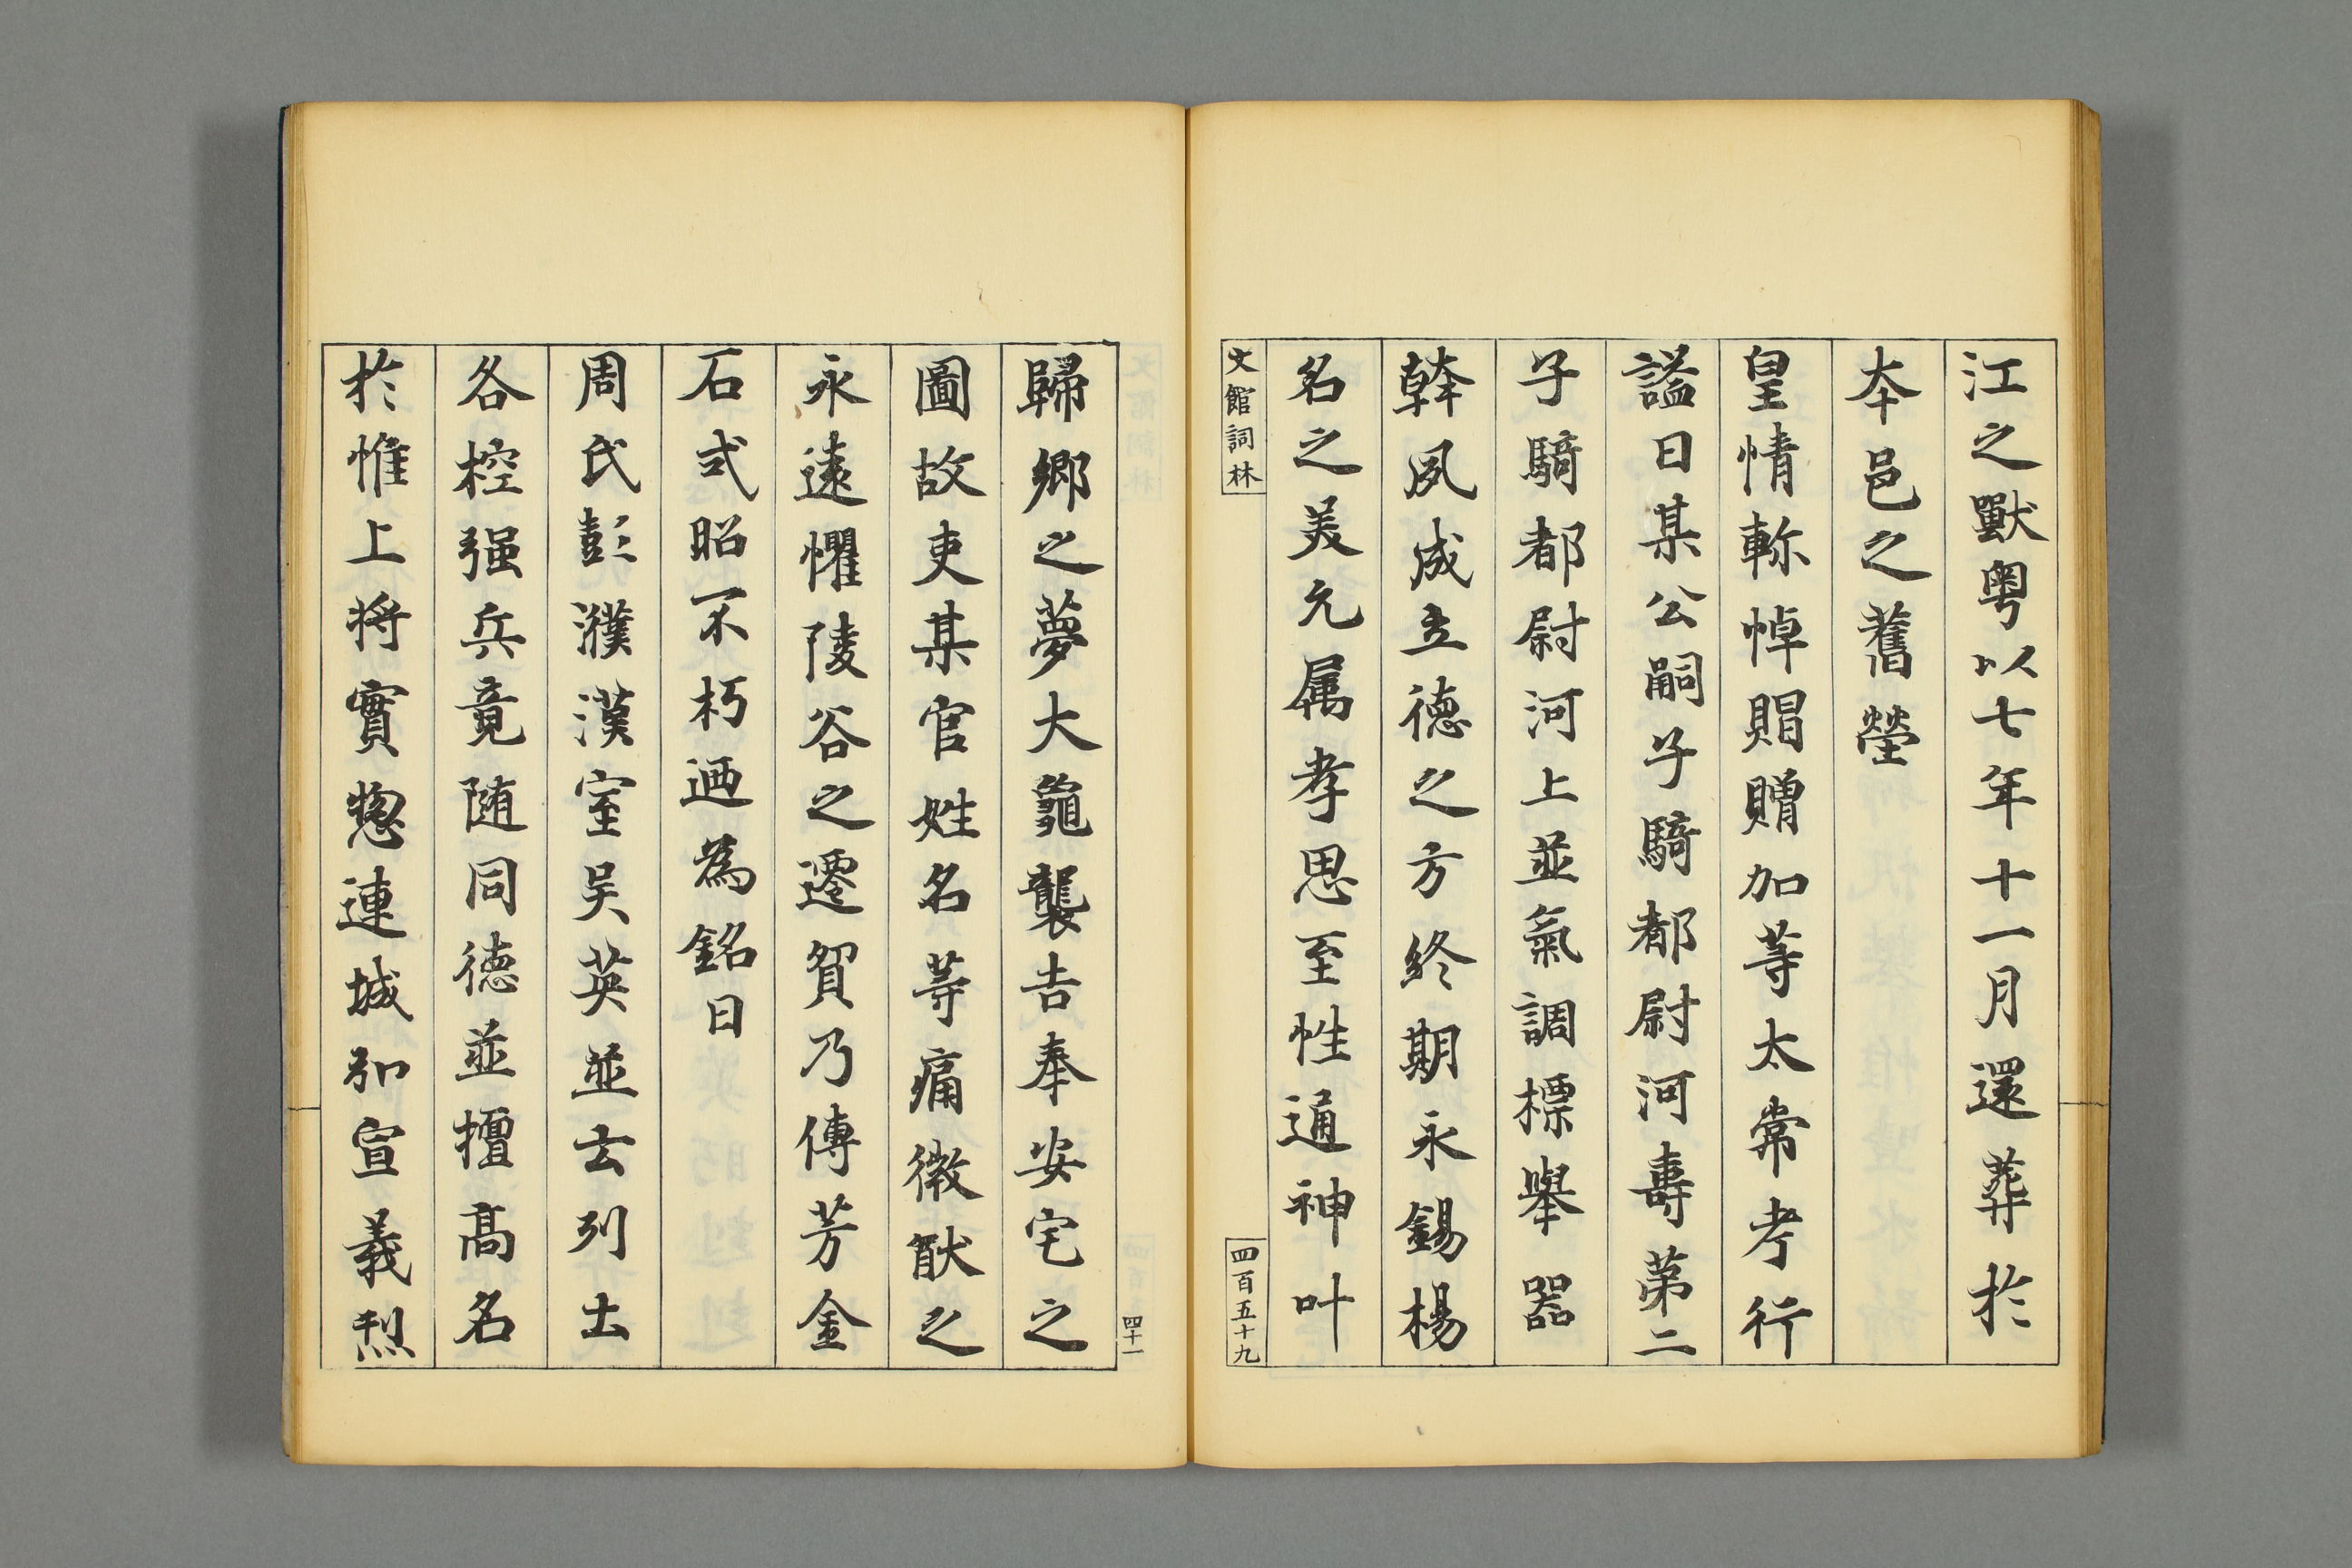 江之獸粵以七年十一月還葬於
本邑之舊塋
皇情軫悼賵贈加等太常考行
謚曰某公嗣子騎都尉河壽第二
子騎都尉河上並氣調標舉器
幹夙成立德之方終期永錫楊
名之美允属孝思至性通神叶
文館詞林
四百五十九
歸鄉之夢大龜襲吉奉安宅之
圖故吏某官姓名等痛徽猷之
永遠懼陵谷之遷貿乃傳芳金
石式昭不朽迺為銘曰
周氏彭濮漢室吴英並去列土
各控强兵竟随同德並擅髙名
於惟上将實惣連城弘宣義烈
四十一